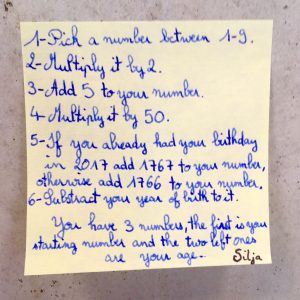 1-Pick a number between 1-9.
2-Multiply it by 2.
3-Add 5 to your number.
4-Multiply it by 50.
5-If you already had your birthday
in 2017 add 1767 to your number,
otherwise add 1766 to your number.
6-Substract your year of birth to it.
You have 3 numbers, the first is your
starting number and the two left ones
are your age-
Silja